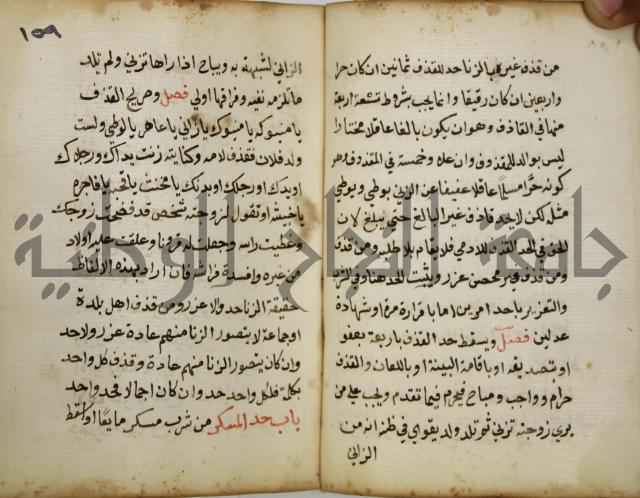 من قذف غيره بالزنا حد للقذف ثمانين ان كان حرا
واربعين ان كان رقيقا وانما يجب بشروط تسعة اربعة
منها في القاذف وهو ان يكون بالغا عاقلا مختارا
ليس بوالد للمقذوف وان علا وخمسة في المقذوف وهو
كونه حرا مسلما عاقلا عفيفا عن الزنى يوطي ويوطي
مثله لكن لا يحد قاذف غير البالغ حتى يبلغ لان
الحق في الحد القذف للادمي فلا يقام بلا طلبه ومن قذف
ومن قذف غير محصن عزر ويثبت الحد هنا وفي الشرب
والتعزير باحد امرين اما باقراره مرة او شهادة
عدلين فصل ويسقط حد القذف باربعة بعفو
او بتصديقه او باقامة البينة او باللعان والقذف
حرام وواجب ومباح فيحرم فيما تقدم ويجب على من
يرى زوجته تزني ثم تلد ولد يقوى في ظنه انه من
الزاني
١٥٩
الزاني لشبهه به ويباح اذا راها تزني ولم تلد
ما تلزمه نفيه وفراقها اولى فصل وصريح القذف
يا منيوكه يا منيوك يا زاني يا عاهر يا لوطي ولست
ولد فلان فقذف لامه وكنايته زنت يداك ورجلاك
او يدك او رجلك او بدنك يا مخنث يا قحبه يا فاجره
يا خبيثه او تقول لزوجة شخص قد فضحت زوجك
وغطيت راسه وجعلت له قرونا وعلقت عليه اولاد
من غيره وافسدت فراشه فان اراد بهذه الالفاظ
حقيقة الزنا حد ولا عزر ومن قذف اهل بلدة
او جماعة لا يتصور الزنا منهم عادة عزر ولا حد
وان كان يتصور الزنا منهم عادة وقذف كل واحد
بكلمة فلكل واحد حد وان كان اجمالا فحد واحد
باب حد المسكر من شرب مسكر مايعا او